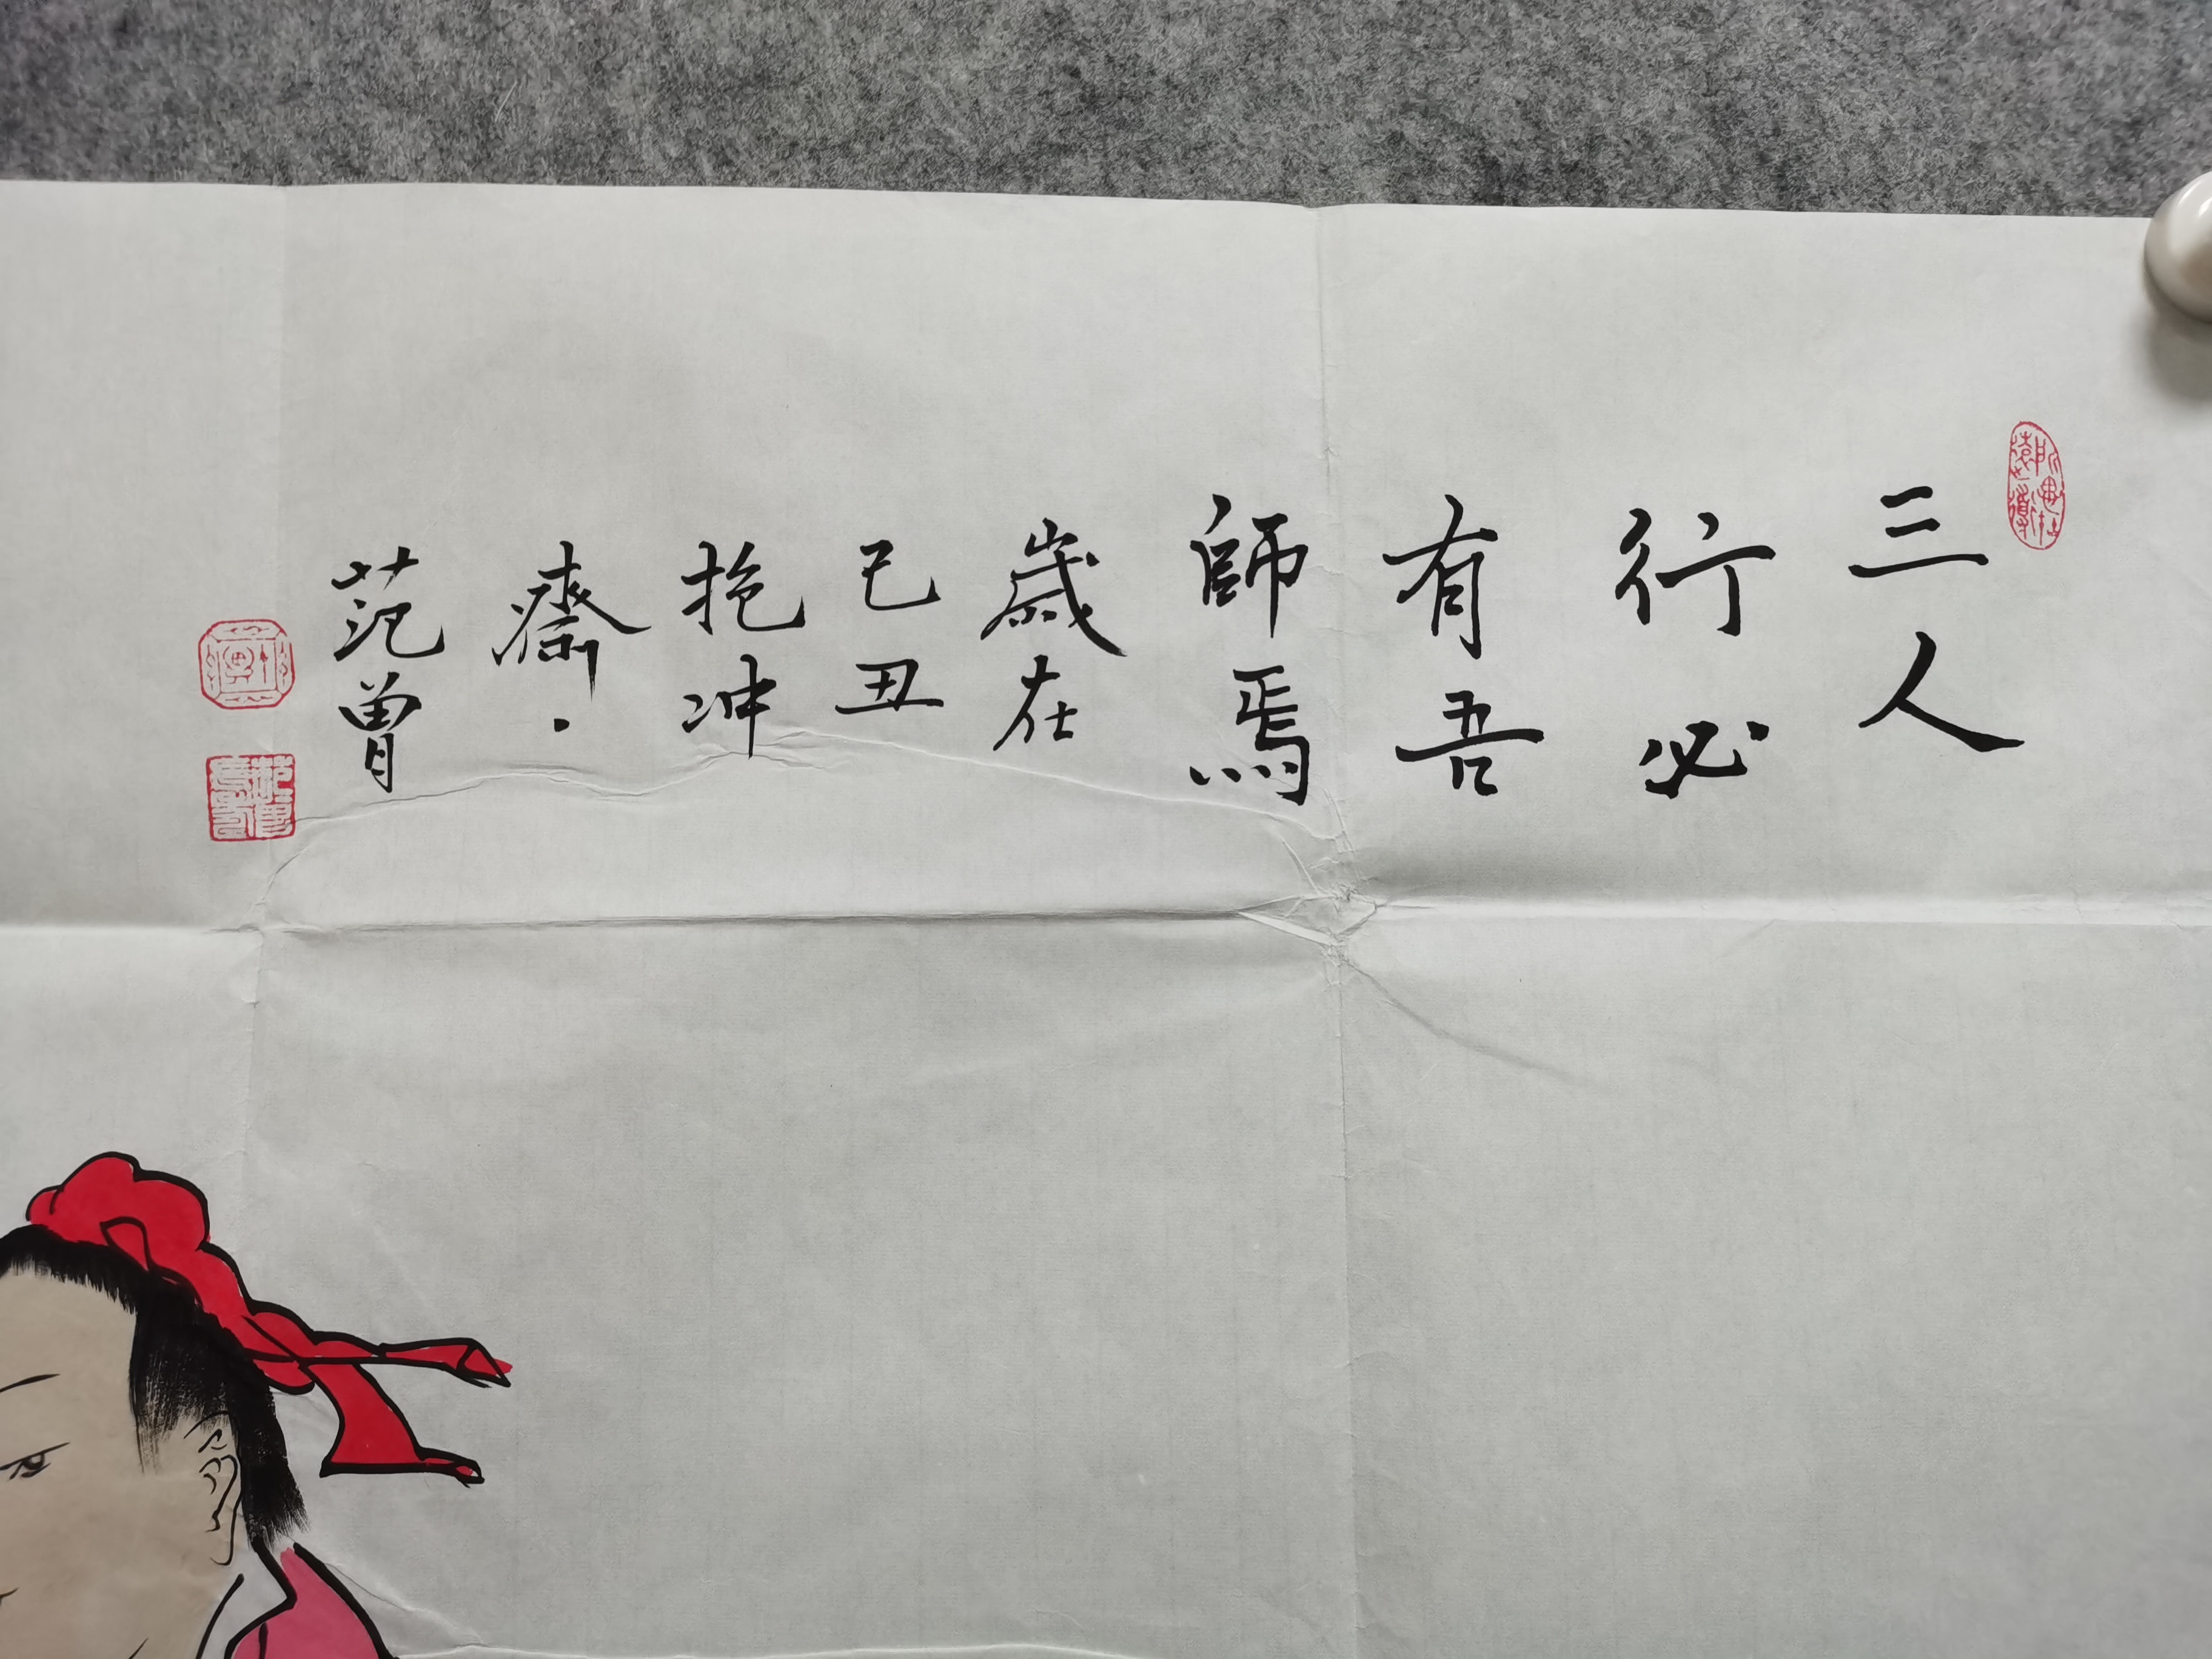 三人
行必
有吾
師焉
歲在
己丑
抱冲
齋·
范曾